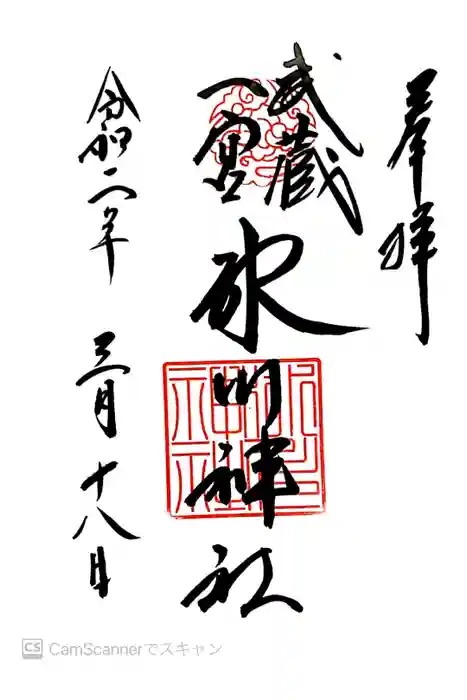 奉拝
武蔵
一宮
氷川神社
令和二年
三月十八日
CS CamScannerでスキャン